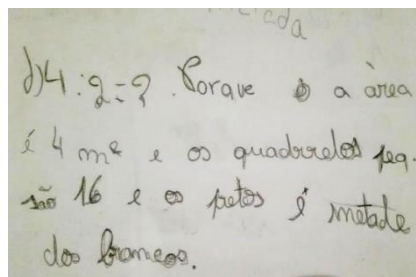 metada
d) 4 : 2 = 2. Porave o a àrea
é 4 m² e os quadrrelos peq.
são 16 e os pretos é metade
dos brancos.